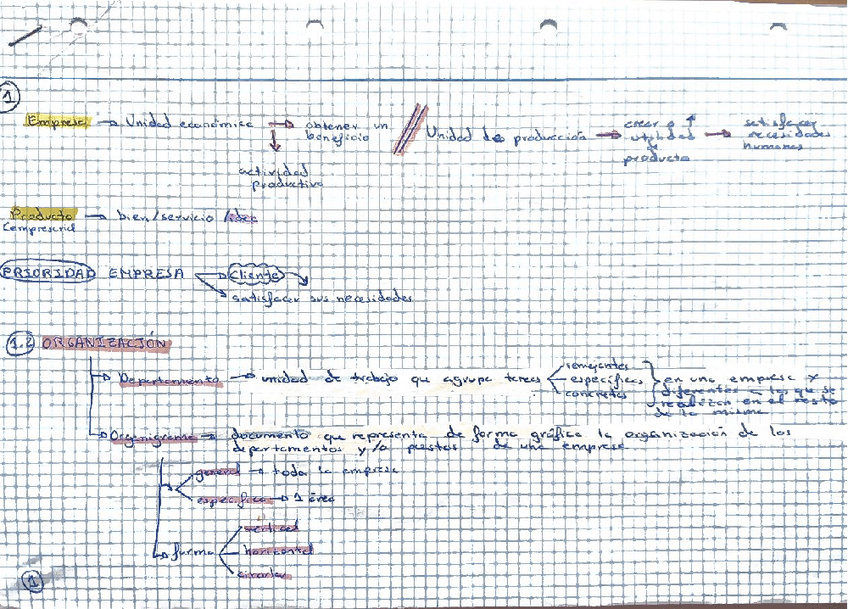 1
Empresa → Unidad económica → obtener un beneficio // Unidad de producción → crear o ↑ utilidad de producto → satisfacer necesidades humanas
↓
actividad productiva
Producto → bien/servicio /idea
(empresarial
PRIORIDAD EMPRESA → Cliente
→ satisfacer sus necesidades
1.2 ORGANIZACIÓN
Departamento → unidad de trabajo que agrupa tareas
semejantes
específicas
concretas
en una empresa y
diferentes a las que se
realizan en el resto
de la misma
Organigrama → documento que representa de forma gráfica la organización de los
departamentos y/o puestos de una empresa
general → toda la empresa
específico → 1 área
forma
vertical
horizontal
circular
1